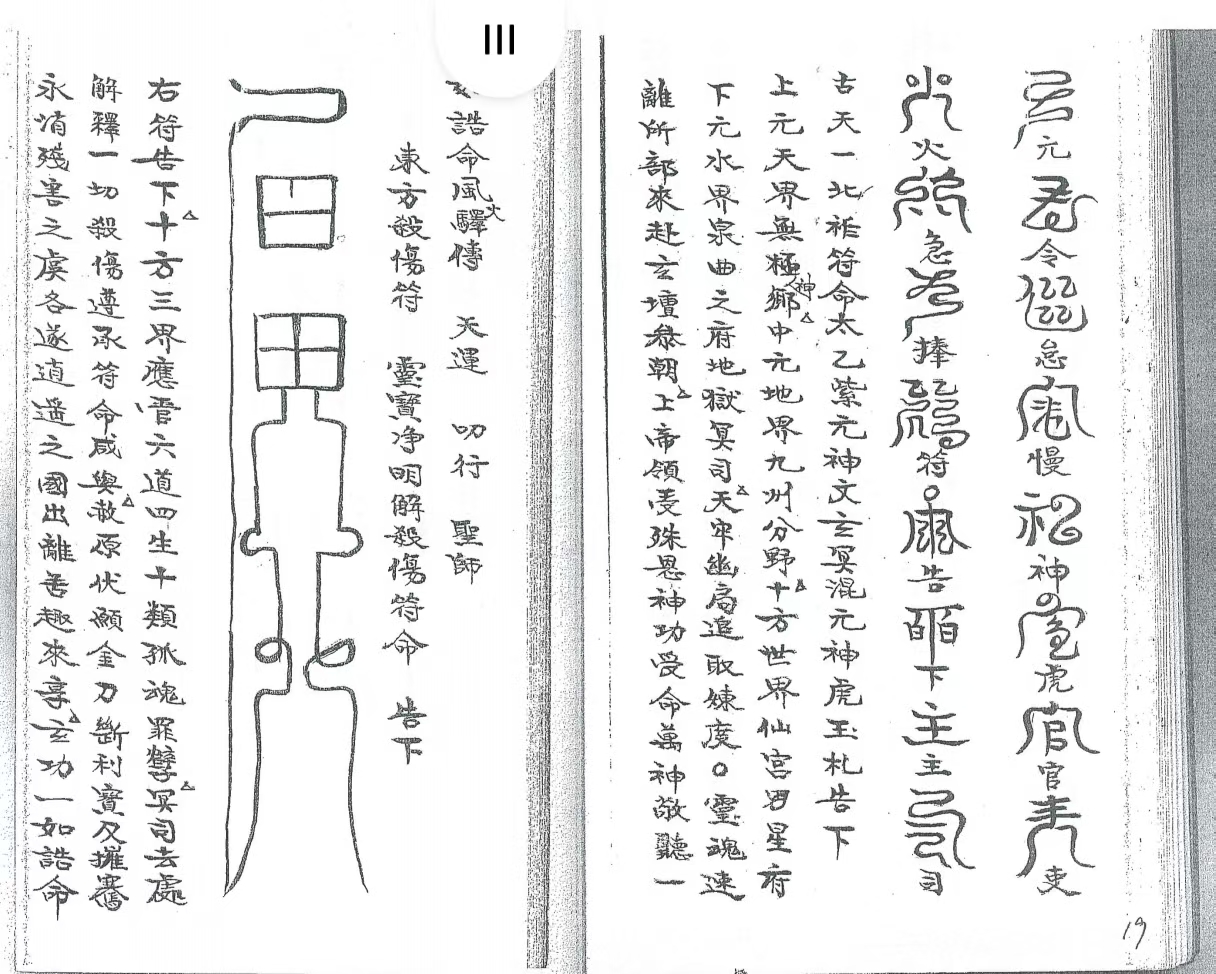 元令怠慢神虎官吏
火急捧符告下主司
古天一北祚符命太乙紫元神文玄冥混元神虎玉札告下
上元天界無極鄉神中元地界九州分野十方世界仙宮男星府
下元水界泉曲之府地獄冥司天牢幽局追取煉度○靈魂速
離所部來赴玄壇叅朝上帝領受殊恩神功受命萬神敬聽一
誥命風火驛傳 天運 叨行 聖師
東方殺傷符 靈寶净明解殺傷符命 告下
右符告下十方三界應晋六道四生十類孤魂罪孽冥司去處
解釋一切殺傷遵承符命咸與赦原伏願金刀斷利寶及摧鶱
永消殘害之虞各遂逍遥之國出離苦趣來享玄功一如誥命
19